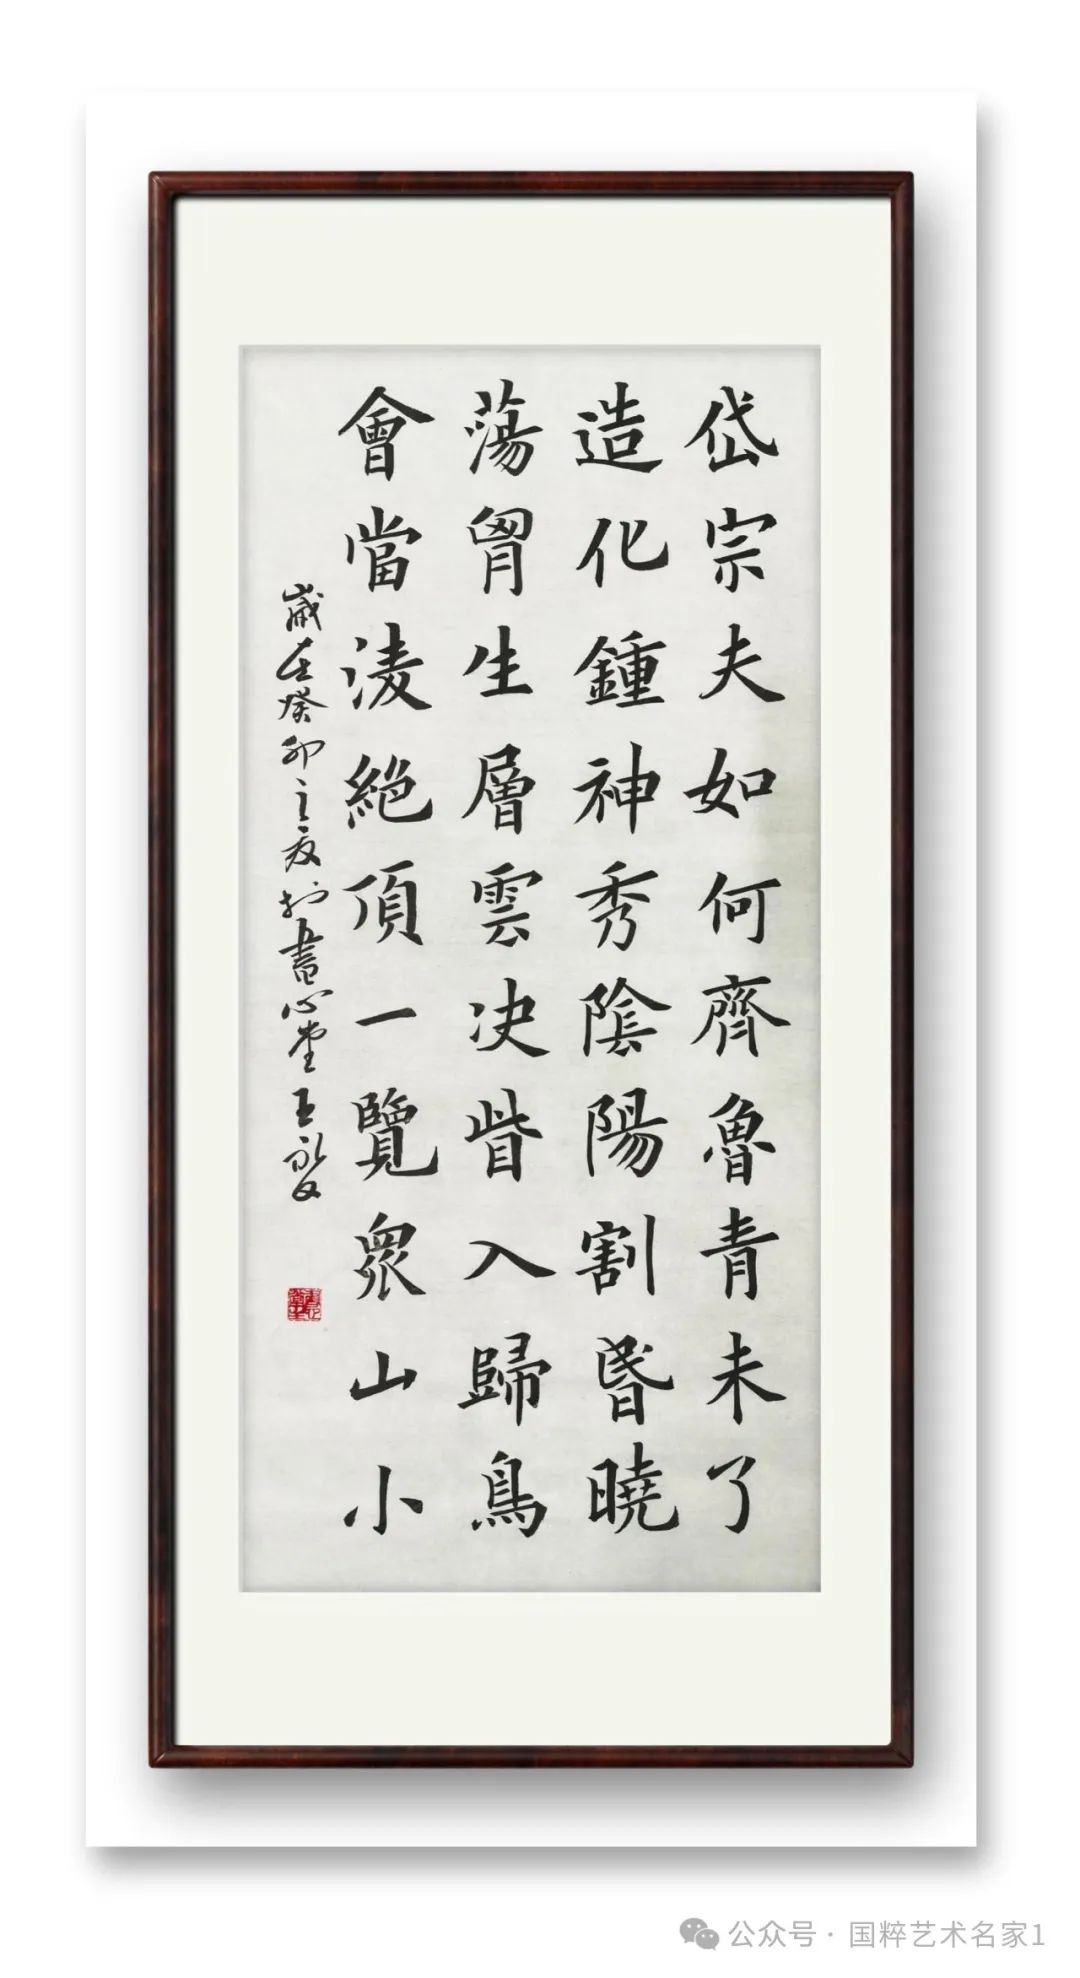 岱宗夫如何齊魯青未了
造化鍾神秀陰陽割昬曉
蕩胷生層雲决眥入歸鳥
會當淩絕頂一覽衆山小
歲在癸卯之夏於書心堂王
公众号·国粹艺术名家1